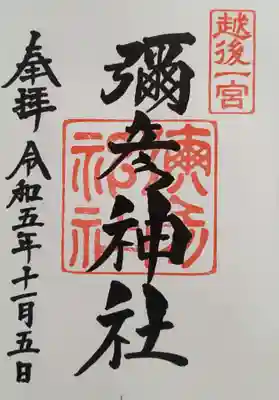 越後一宮
彌彦神社
彌彦神社
奉拝 令和五年十一月五日